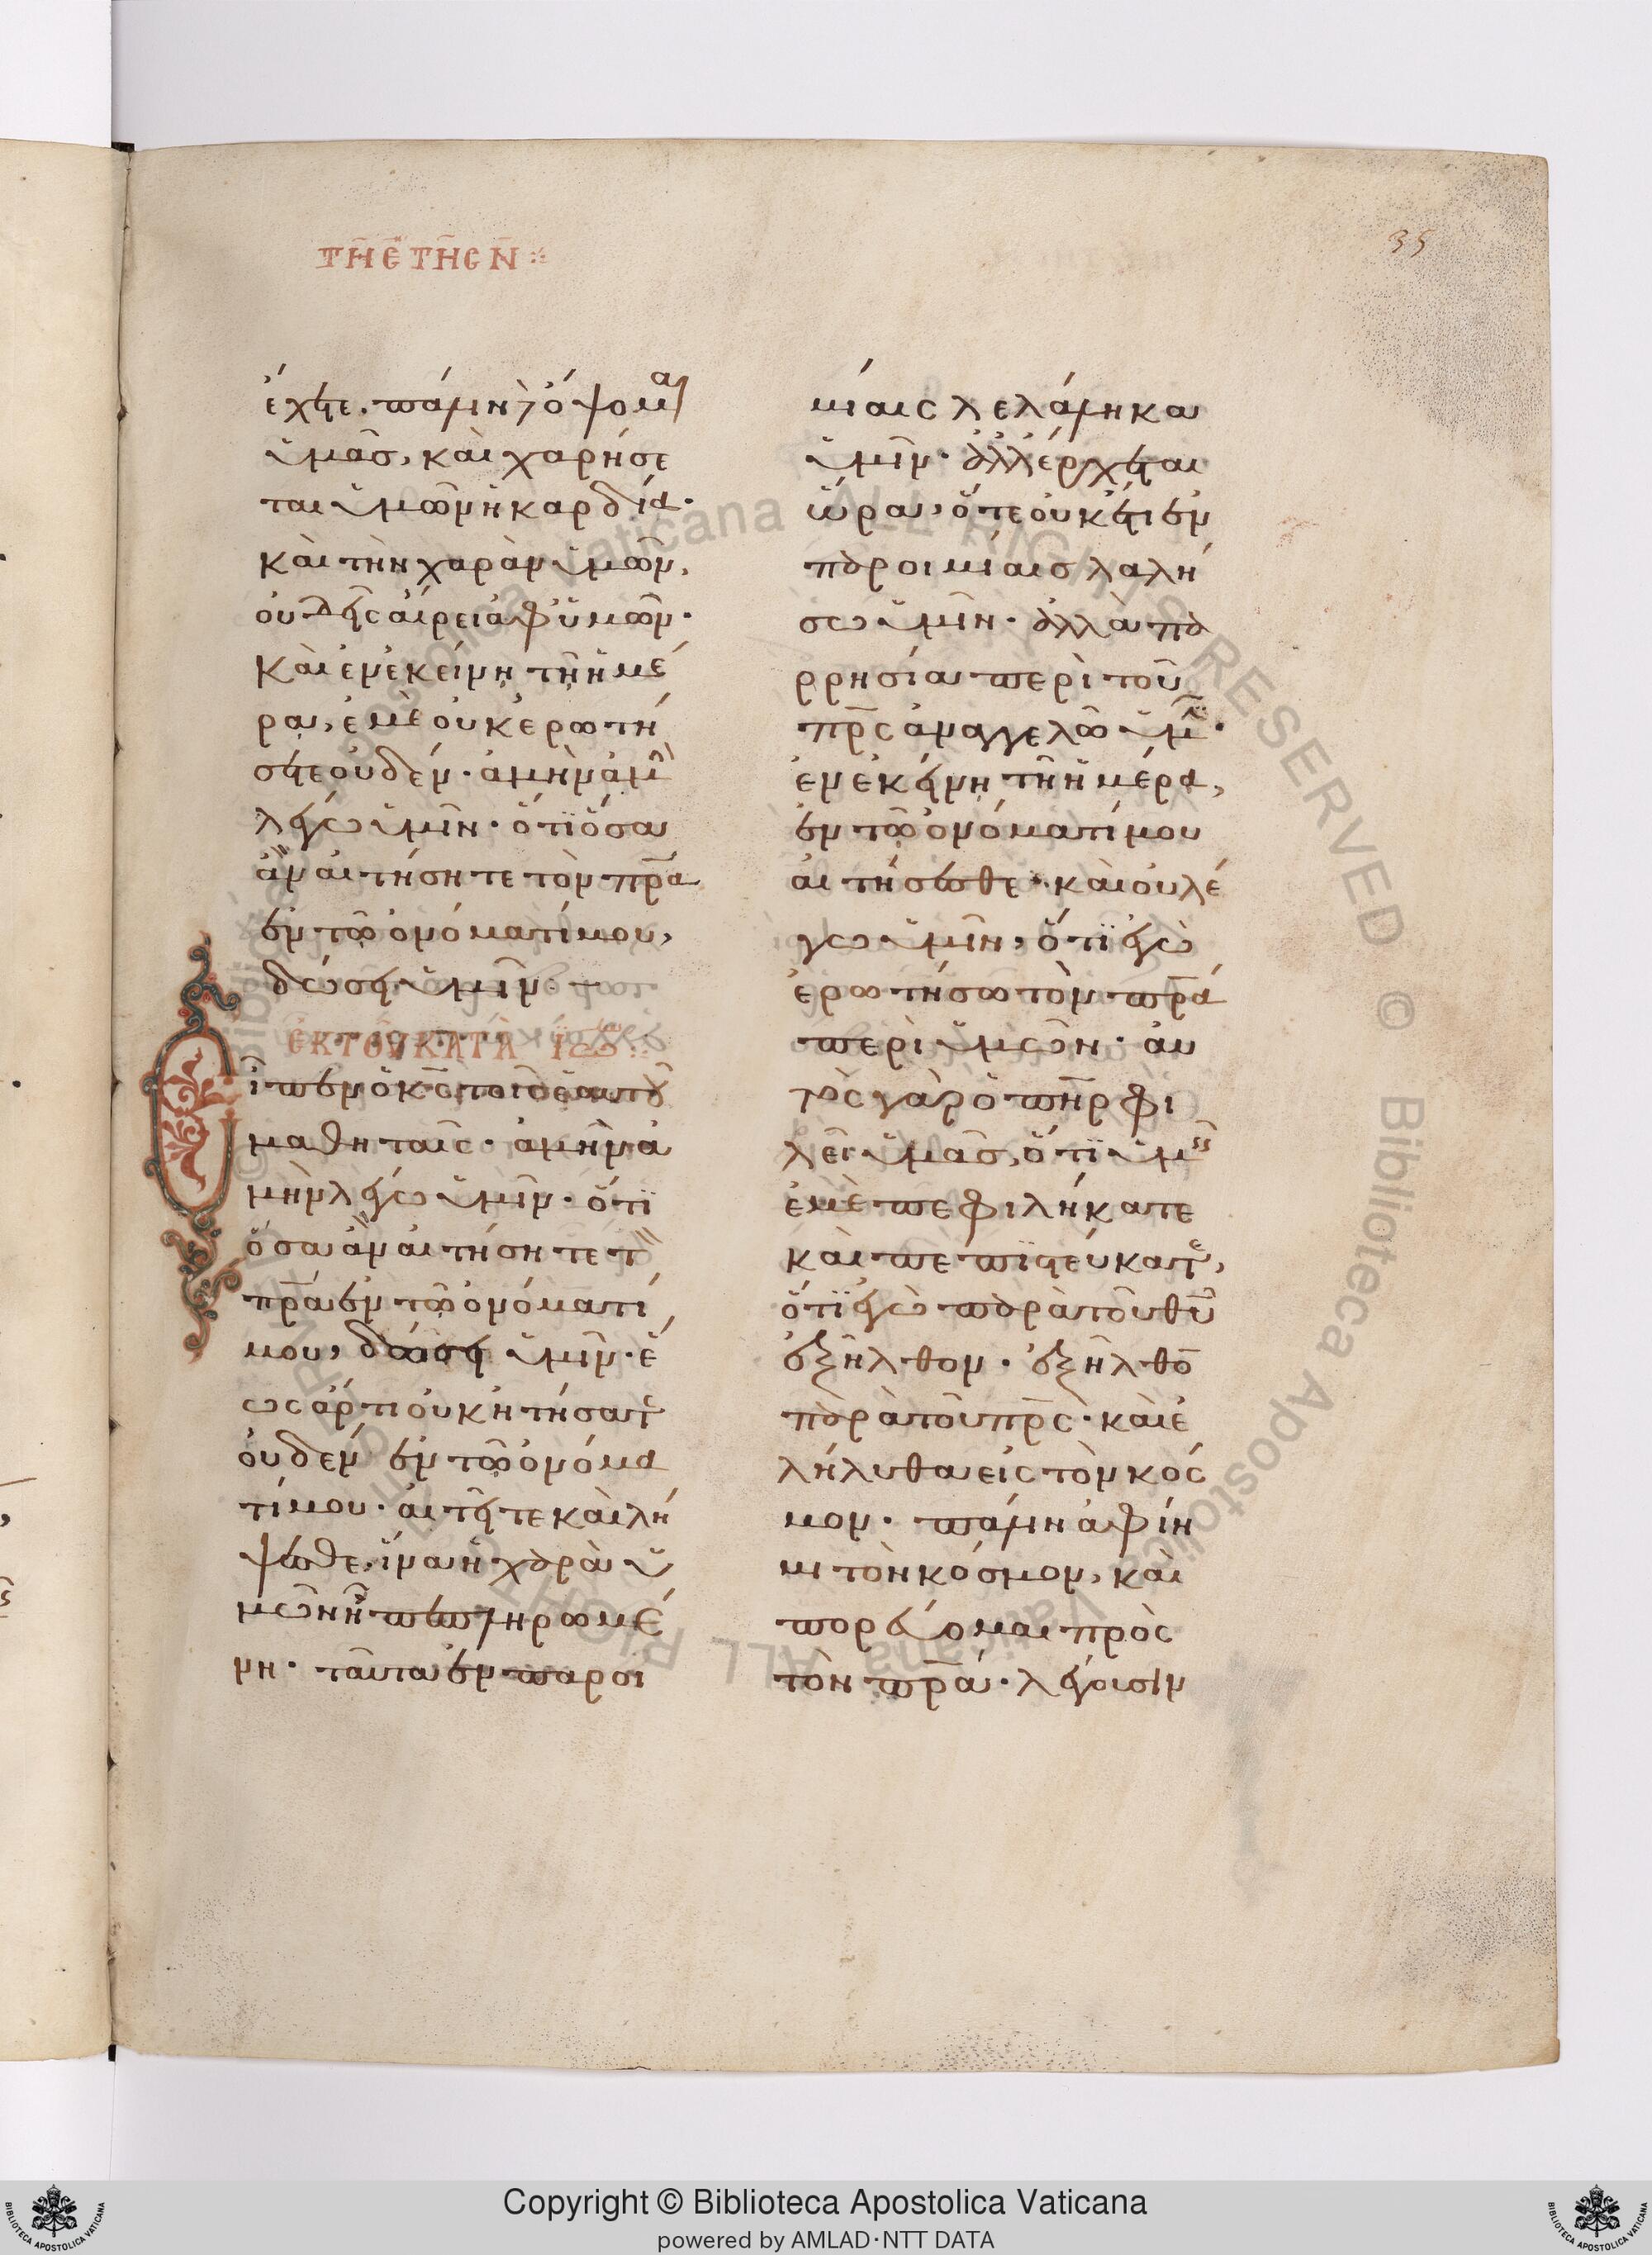 ΤΗ Ε ΤΗϹ Ν
35
ἔχετε· πάλιν δὲ ὄψομαι
ὑμᾶσ, καὶ χαρήσε
ται ὑμῶν ἡ καρδία·
καὶ τὴν χαρὰν ὑμῶν,
οὐδεὶς αἴρει ἀφ' ὑμῶν·
καὶ ἐν ἐκείνῃ τῇ ἡμέ
ρᾳ, ἐμὲ οὐκ ἐρωτή
σετε οὐδέν· ἀμὴν ἀμὴν
λέγω ὑμῖν· ὅτι ὅσα
ἂν αἰτήσητε τὸν πρ̅α
ἐν τῷ ὀνόματί μου,
δώσει ὑμῖν·
ἐκ τοῦ κατὰ Ἰω
ἶπεν ὁ κ̅ς τοῖς ἑαυτοῦ
μαθηταῖς· ἀμὴν ἀ
μὴν λέγω ὑμῖν· ὅτι
ὅσα ἂν αἰτήσητε τὸν
πρ̅α ἐν τῷ ὀνόματί
μου, δώσει ὑμῖν· ἕ
ως ἄρτι οὐκ ἠτήσατε
οὐδὲν ἐν τῷ ὀνόμα
τί μου· αἰτεῖτε καὶ λή
ψεσθε, ἵνα ἡ χαρὰ ὑ
μῶν ᾖ πεπληρωμέ
νη· ταῦτα ἐν παροι
μίαις λελάληκα
ὑμῖν· ἀλλ' ἔρχεται
ὥρα, ὅτε οὐκέτι ἐν
παροιμίαισ λαλή
σω ὑμῖν· ἀλλὰ πα
ρρησίᾳ περὶ τοῦ
πρ̅ς ἀναγγελῶ ὑμῖν·
ἐν ἐκείνῃ τῇ ἡμέρᾳ,
ἐν τῷ ὀνόματί μου
αἰτήσεσθε· καὶ οὐ λέ
γω ὑμῖν, ὅτι ἐγὼ
ἐρωτήσω τὸν πρ̅α
περὶ ὑμῶν· αὐ
τὸς γὰρ ὁ πη̅ρ φι
λεῖ ὑμᾶσ, ὅτι ὑμεῖς
ἐμὲ πεφιλήκατε
καὶ πεπιστεύκατε,
ὅτι ἐγὼ παρὰ τοῦ θυ̅
ἐξῆλθον· ἐξῆλθο̅
παρὰ τοῦ πρ̅ς· καὶ ἐ
λήλυθα εἰς τὸν κόσ
μον· πάλιν ἀφίη
μι τὸν κόσμον, καὶ
πορεύομαι πρὸς
τὸν πρ̅α· λέγουσιν
Copyright © Biblioteca Apostolica Vaticana
powered by AMLAD·NTT DATA